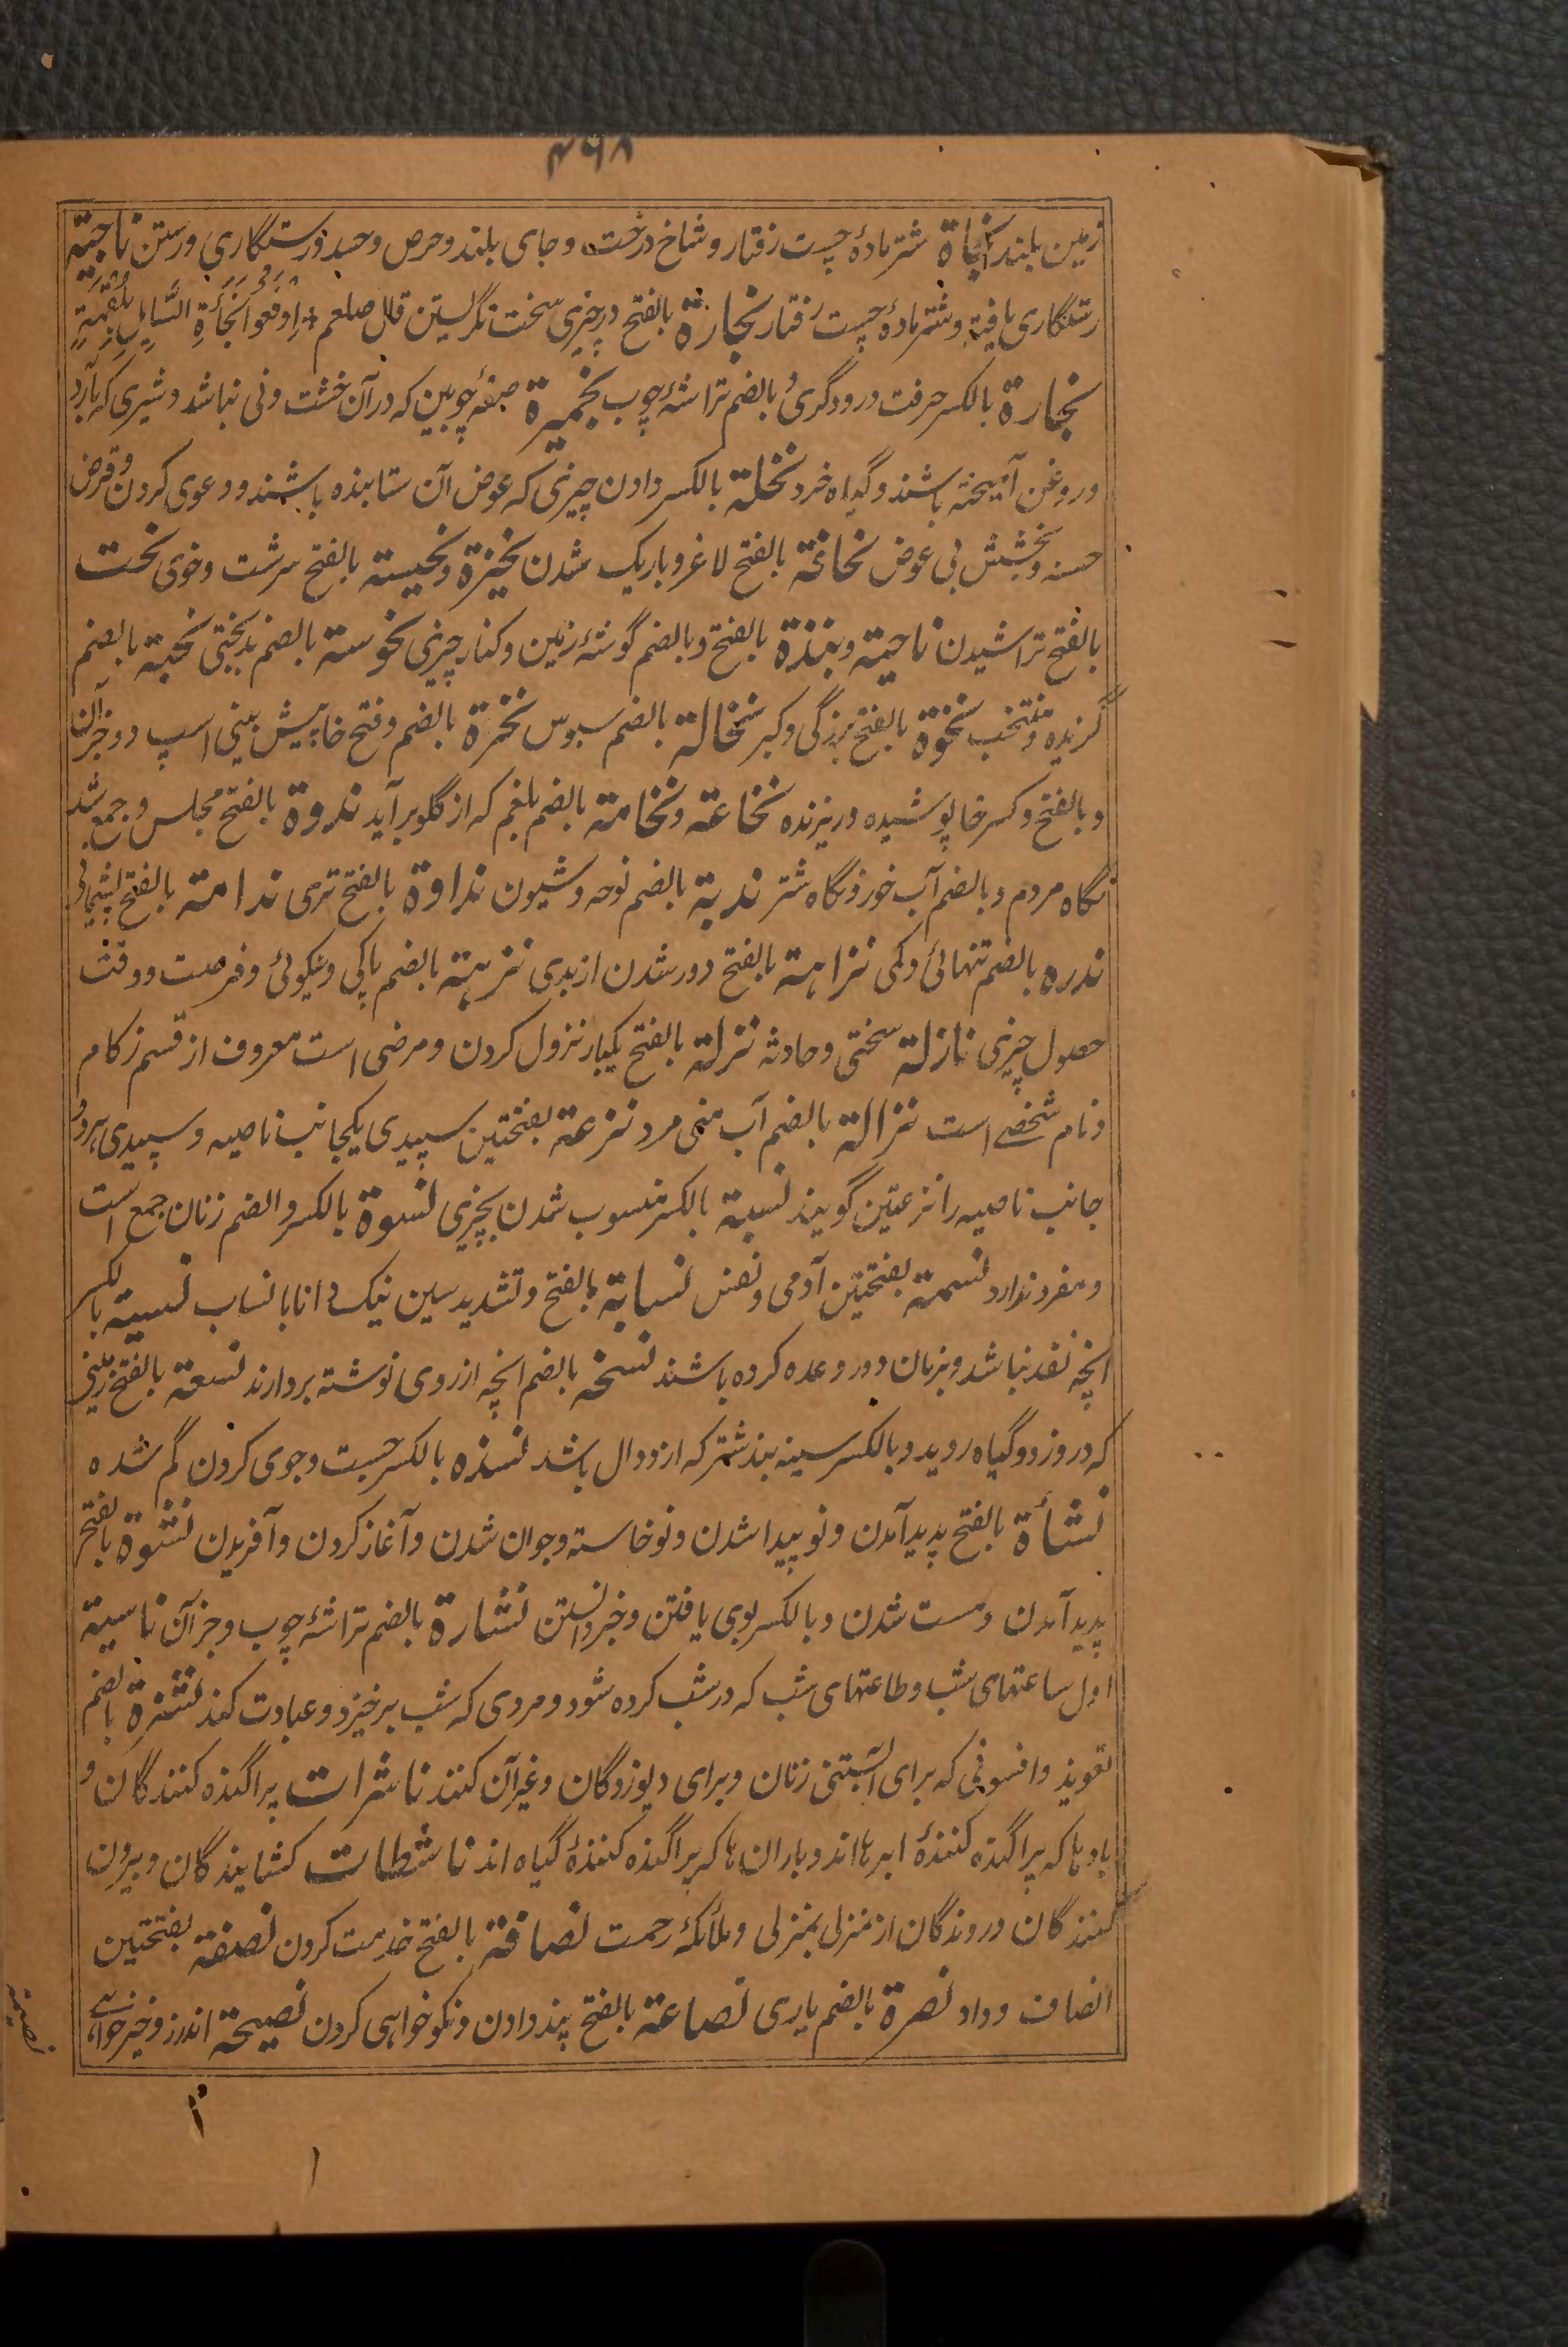 ۴۶۸
زمین بلند نجاة شتر مادهٔ چست رفتار و شاخ درخت و جای بلند و حرص و حسد و رستگاری و رستن ناجیة
رستگاری یافته و شتر مادهٔ چست رفتار نجارة بالفتح در چیزی سخت نگریستن قال صلعم اوقعوا نجأة السایل بلقمة
نجارة بالکسر حرفت درودگری و بالضم تراشهٔ چوب نجیرة صفهٔ چوبین که در آن خشت و نی نباشد و شیری که بآرد
و روغن آمیخته باشند و گیاه خرد نحلة بالکسر دادن چیزی که عوض آن ستاینده باشند و دعوی کردن و قرض
حسنه و بخشش بی عوض نحافة بالفتح لاغر و باریک شدن نحیزة و نحیتة بالفتح سرشت و خوی نحت
بالفتح تراشیدن ناحیة و نبذة بالفتح و بالضم گوشهٔ زمین و کنار چیزی نحوسة بالضم بدبختی نخبة بالضم
گزیده و منتخب نخوة بالفتح بزرگی و کبر نخالة بالضم سبوس نخرة بالضم و فتح خا پیش بینی اسپ و جز آن
و بالفتح و کسر خا پوشیده و ریزنده نخاعة و نخامة بالضم بلغم که از گلو برآید ندوة بالفتح مجلس و جمع شد
نگاه مردم و بالضم آب خوردنگاه شتر ندبة بالضم نوحه و شیون نداوة بالفتح تری ندامة بالفتح پشیمانی
ندره بالضم تنهائی و کمی نزاهة بالفتح دور شدن از بدی نزهة بالضم پاکی و نیکوئی و فرصت و وقت
حصول چیزی نازلة سختی و حادثه نزلة بالفتح یکبار نزول کردن و مرضی است معروف از قسم زکام
و نام شخصے است نزالة بالضم آب منی مرد نزعة بفتحتین سپیدی یکجانب ناصیه و سپیدی هر دو
جانب ناصیه را نزعتین گویند نسبة بالکسر منسوب شدن بچیزی نسوة بالکسر و الضم زنان جمع است
و مفرد ندارد نسمة بفتحتین آدمی و نفس نسابة بالفتح و تشدید سین نیک دانا بانساب نسیة بالکسر
انچه نقد نباشد و بزمان دور وعده کرده باشند نسخه بالضم انچه از روی نوشته بردارند نسعة بالفتح زمینی
که در و زود گیاه روید و بالکسر سینه بند شتر که از دوال باشد نسذه بالکسر جست و جوی کردن گم شده
نشأة بالفتح پدید آمدن و نو پیدا شدن و نوخاسته و جوان شدن و آغاز کردن و آفریدن نشوة بالفتح
پدید آمدن و مست شدن و بالکسر بوی یافتن و خبر دانستن نشارة بالضم تراشهٔ چوب و جز آن ناسیة
اول ساعتهای شب و طاعتهای شب که در شب کرده شود و مردی که شب برخیزد و عبادت کند نشرة بالضم
تعویذ و افسونی که برای آبستنی زنان و برای دیوزدگان و غیر آن کنند ناشرات پراگنده کنندگان و
بادها که پراگنده کنندهٔ ابرها اند و باران ها که پراگنده کنندهٔ گیاه اند ناشطات کشایندگان و بیرون
کنندگان و روندگان از منزلی بمنزلی و ملائکهٔ رحمت نصافة بالفتح خدمت کردن نصفة بفتحتین
انصاف و داد نصرة بالضم یاری نصاعة بالفتح پند دادن و نکو خواهی کردن نصیحة اندرز و خیر خواهے
نصیة